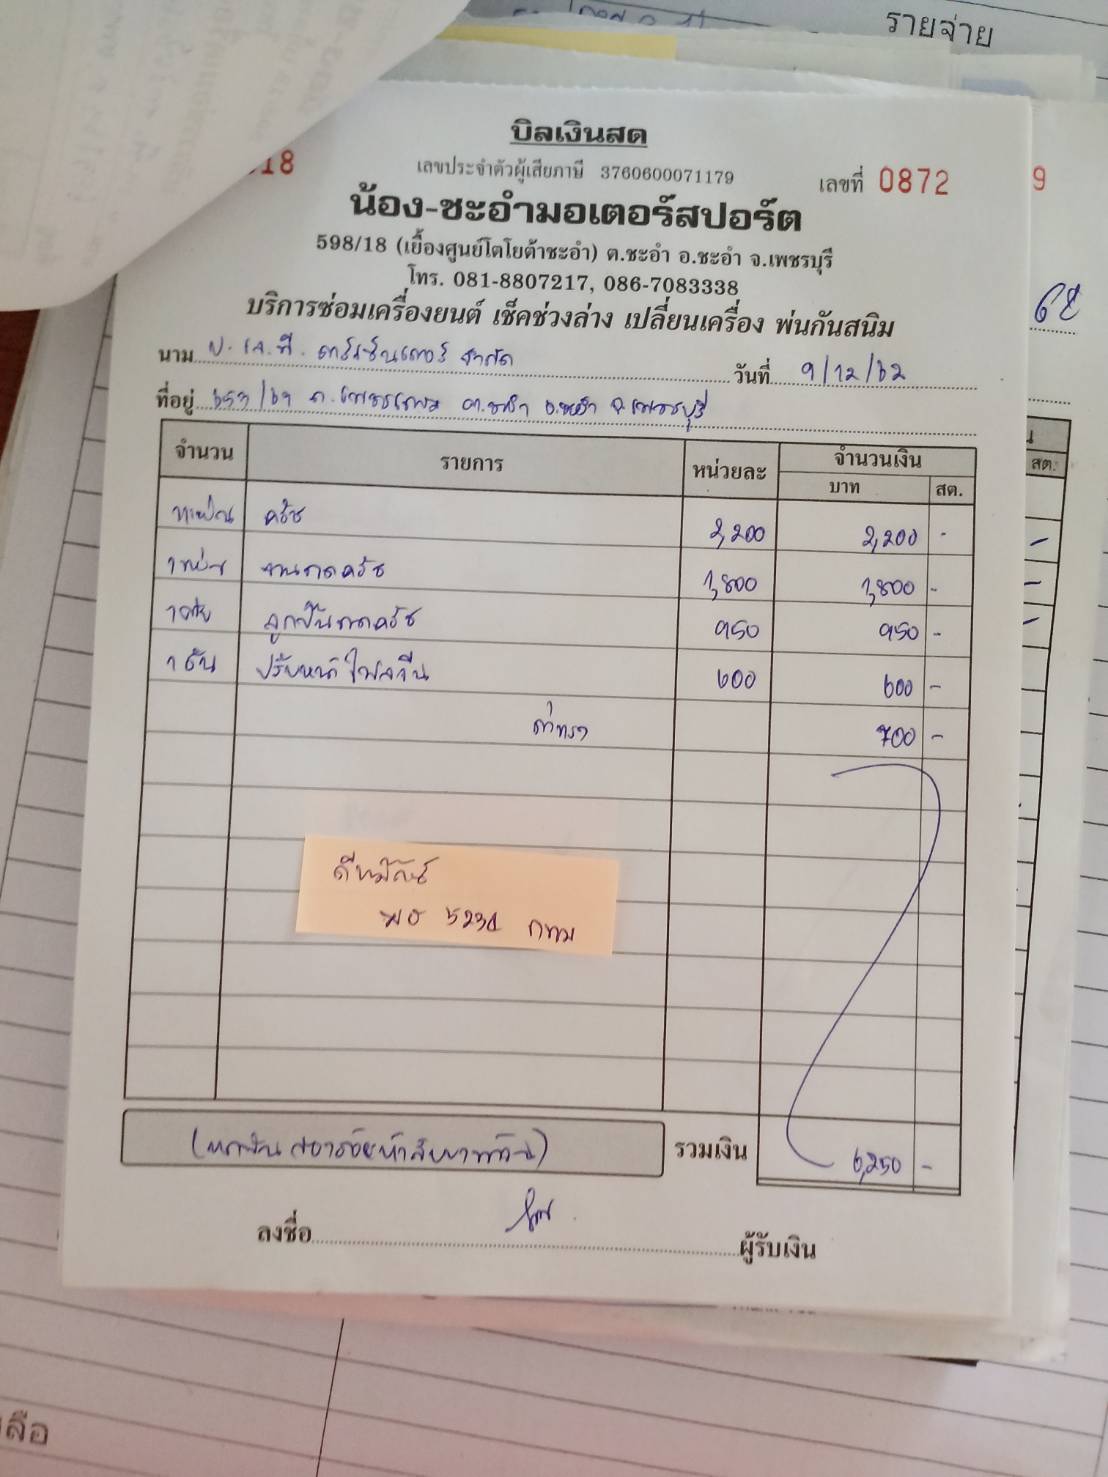 รายจ่าย
บิลเงินสด
18
เลขประจำตัวผู้เสียภาษี 3760600071179
เลขที่ 0872
9
น้อง-ชะอำมอเตอร์สปอร์ต
598/18 (เยื้องศูนย์โตโยต้าชะอำ) ต.ชะอำ อ.ชะอำ จ.เพชรบุรี
โทร. 081-8807217, 086-7083338
บริการซ่อมเครื่องยนต์ เช็คช่วงล่าง เปลี่ยนเครื่อง พ่นกันสนิม
62
นาม บ. เค.ที. คาร์เซ็นเตอร์ จำกัด วันที่ 9/12/62
ที่อยู่ ถ.เพชรเกษม ต.ชะอำ อ.ชะอำ จ.เพชรบุรี
จำนวน รายการ หน่วยละ จำนวนเงิน
บาท สต.
สต.
1แผ่น ครัช 2,200 2,200 -
1แผ่น จานกดครัช 1,800 1,800 -
1ตลับ ลูกปืนกดครัช 950 950 -
1อัน ปรับหน้าไฟลวีล 600 600 -
ค่าแรง 700 -
ดีแม็กซ์
5234 กทม
(หกพันสองร้อยห้าสิบบาทถ้วน) รวมเงิน 6,250 -
ลงชื่อ ผู้รับเงิน
ลือ